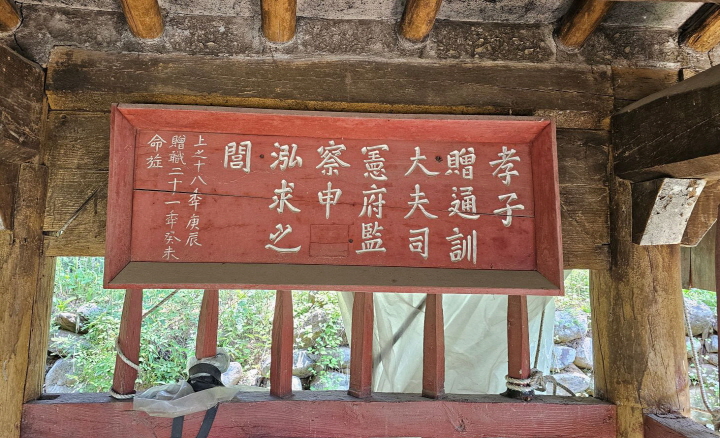 孝子
贈通訓
大夫司
憲府監
察申
泓求之
閭
上之十八年庚辰
贈職二十一年癸未
命旌